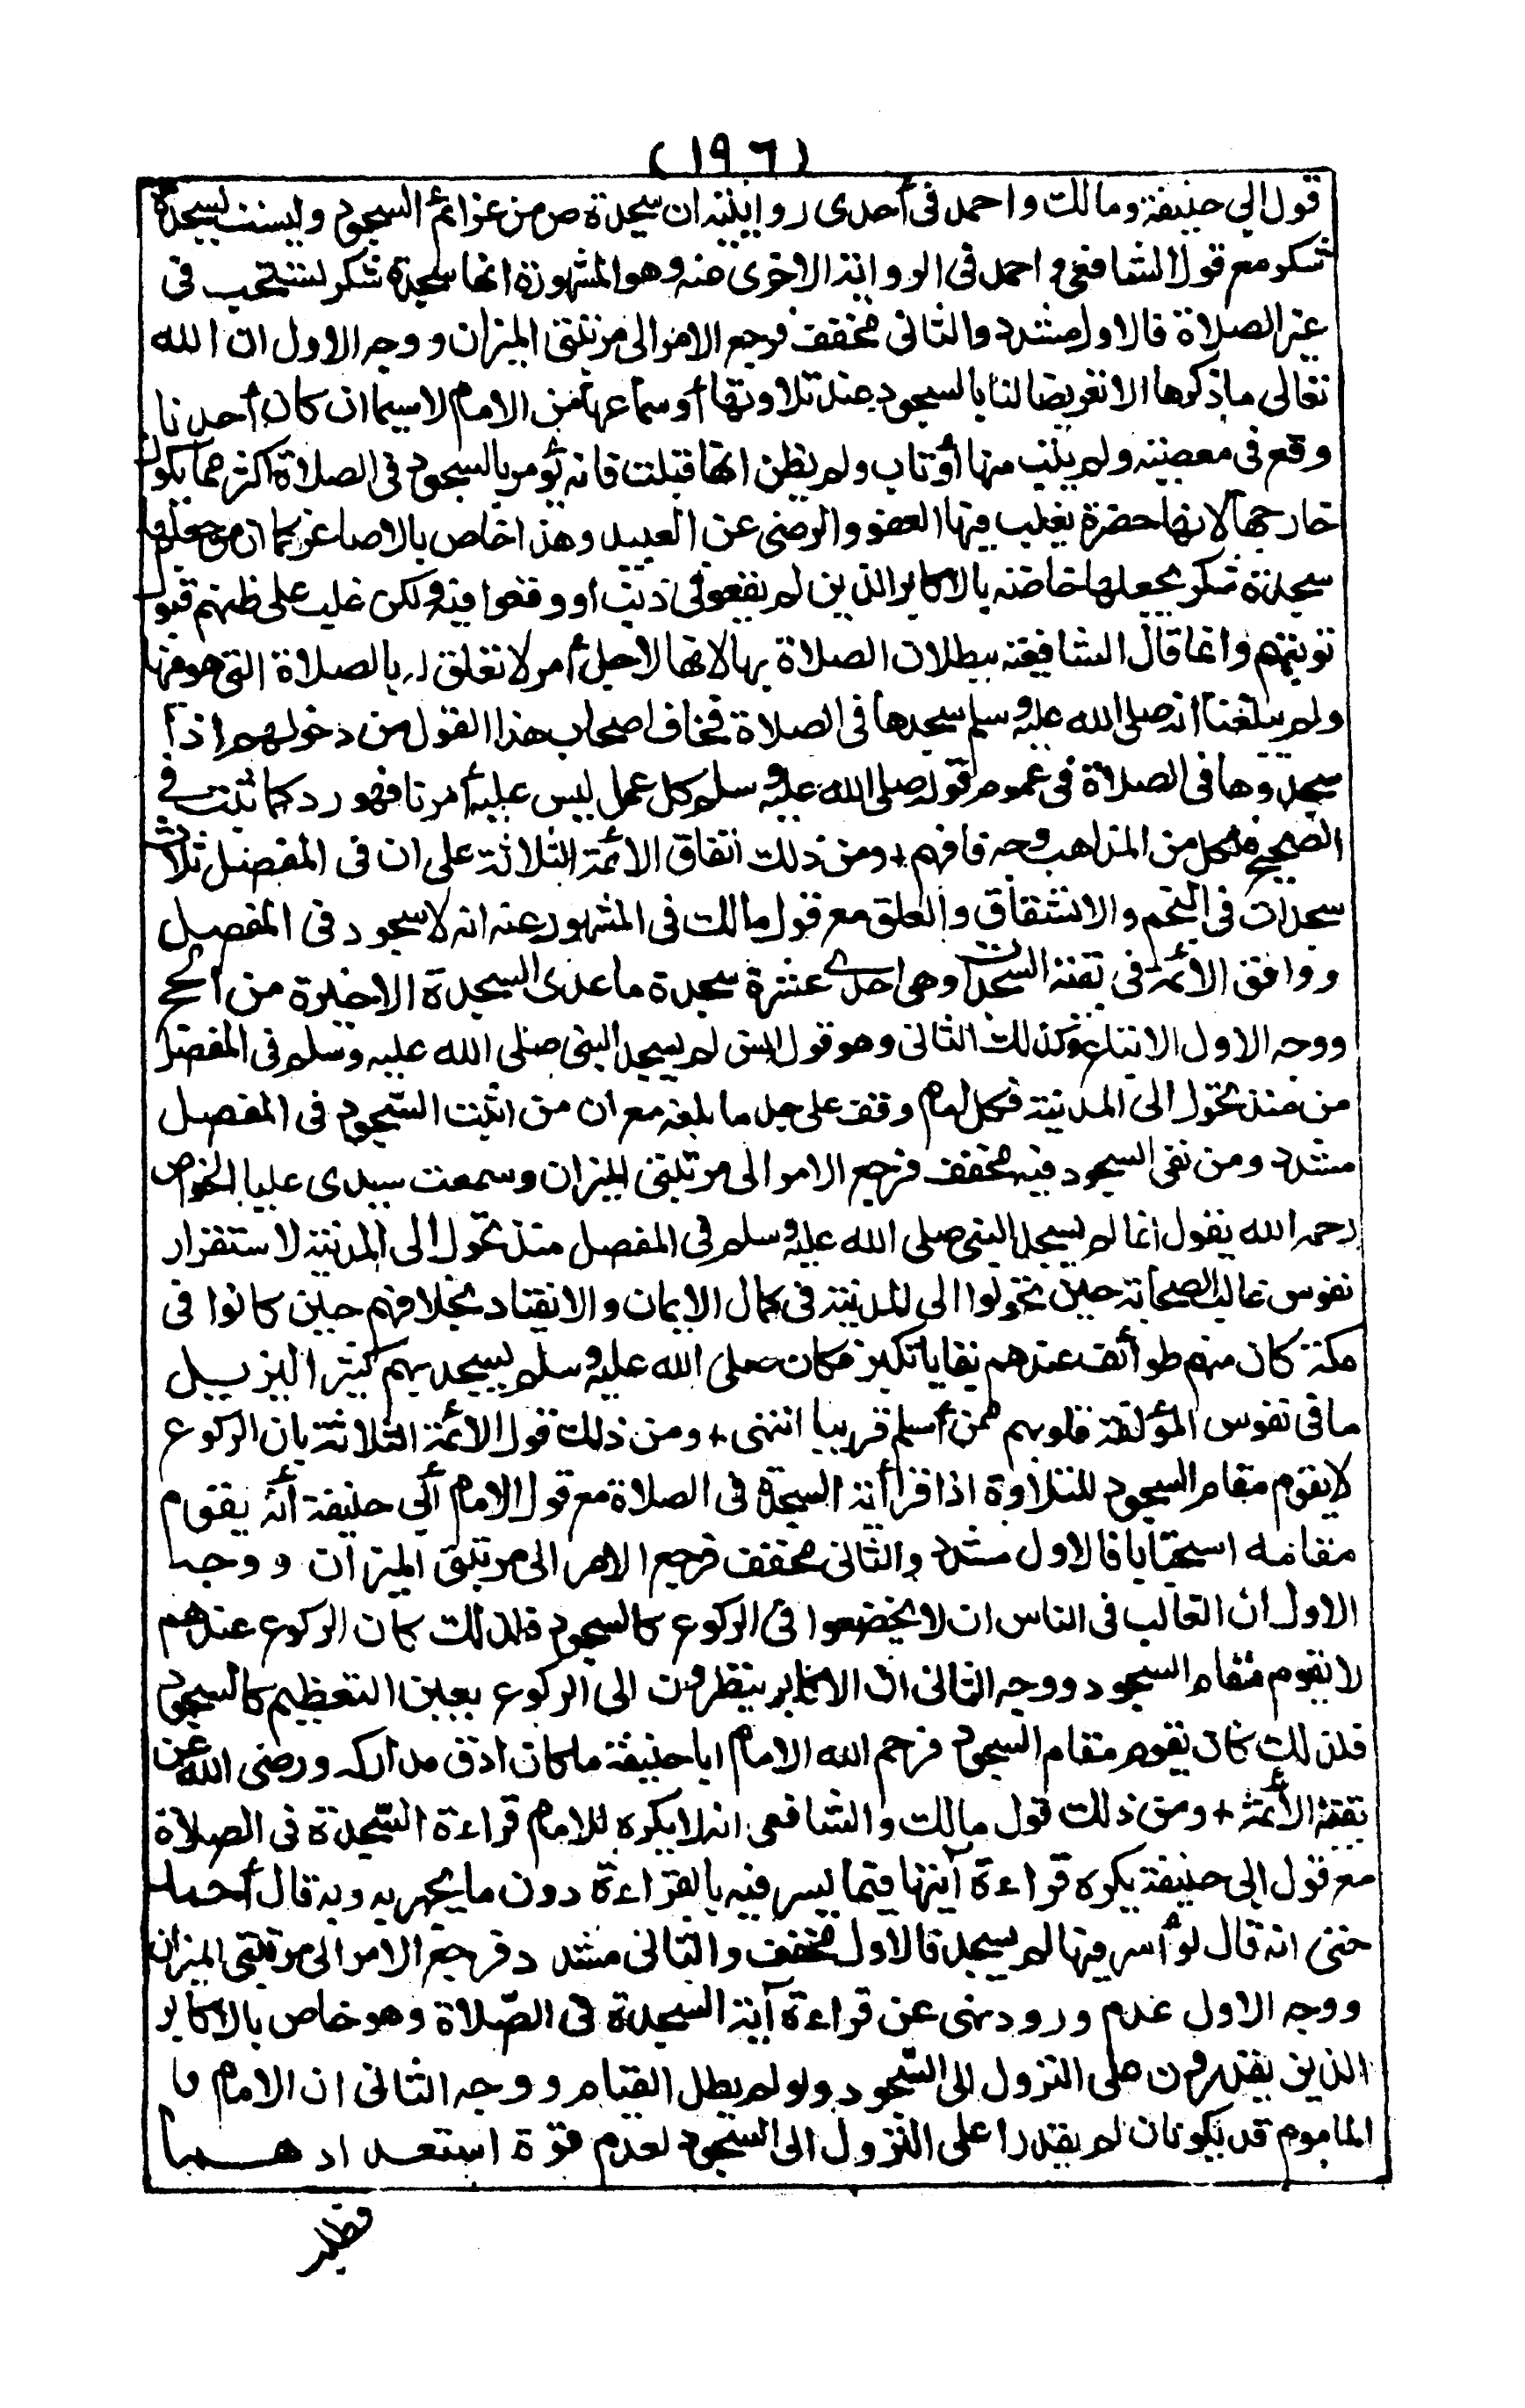 (١٩٦)
قول ابي حنيفة ومالك واحمد فى أحدى روايتيه ان سجدة ص من عزائم السجود وليست بسجدة
شكر مع قول الشافعي واحمد فى الرواية الاخرى عنه وهو المشهورة انها سجدة شكر تستحب فى
غير الصلاة فالاول مشدد والثانى مخفف فرجع الامر الى مرتبتى الميزان ووجه الاول ان الله
تعالى ما ذكرها الا تعريضا لنا بالسجود عند تلاوتها أو سماعها من الامام لا سيما ان كان أحدنا
وقع فى معصية ولم يتب منها أو تاب ولم يظن انها قبلت فانه يؤمر بالسجود فى الصلاة اكثر مما يكون
خارجها لانها حضرة يغلب فيها العفو والرضى عن العبيد وهذا خاص بالاصاغر كما ان من جعلها
سجدة شكر يجعلها خاصة بالاكابر الذين لم يقعوا فى ذنب او وقعوا فيه ولكن غلب على ظنهم قبول
توبتهم وانما قال الشافعية ببطلان الصلاة بها لانها لاجل أمر لا تعلق له بالصلاة التى هو فيها
ولم يبلغنا انه صلى الله عليه وسلم سجدها فى الصلاة فخاف اصحاب هذا القول من دخولهم اذا
سجدوها فى الصلاة فى عموم قوله صلى الله عليه وسلم كل عمل ليس عليه أمرنا فهو رد كما ثبت في
الصحيح فلكل من المذاهب وجه فافهم + ومن ذلك اتفاق الائمة الثلاثة على ان فى المفصل ثلاث
سجدات فى النجم والانشقاق والعلق مع قول مالك فى المشهور عنه انه لا سجود فى المفصل
ووافق الائمة فى بقية السجدات وهى احدى عشرة سجدة ماعدى السجدة الاخيرة من الحج
ووجه الاول الاتباع وكذلك الثانى وهو قول انس لم يسجد النبى صلى الله عليه وسلم فى المفصل
من منذ تحول الى المدينة فكل امام وقف على حد ما بلغه مع ان من اثبت السجود فى المفصل
مشدد ومن نفى السجود فيه مخفف فرجع الامر الى مرتبتى الميزان وسمعت سيدى عليا الخواص
رحمه الله يقول انما لم يسجد النبى صلى الله عليه وسلم فى المفصل منذ تحول الى المدينة لاستقرار
نفوس غالب الصحابة حين تحولوا الى المدينة فى كمال الايمان والانقياد بخلافهم حين كانوا فى
مكة كان منهم طوائف عندهم بقايا تكبر فكان صلى الله عليه وسلم يسجد بهم كثيرا ليزيل
ما فى نفوس المؤلفة قلوبهم ممن أسلم قريبا انتهى + ومن ذلك قول الائمة الثلاثة بان الركوع
لا يقوم مقام السجود للتلاوة اذا قرأ أية السجدة فى الصلاة مع قول الامام أبي حنيفة أنه يقوم
مقامه استحبابا فالاول مشدد والثانى مخفف فرجع الامر الى مرتبتى الميزان ووجه
الاول ان الغالب فى الناس ان لا يخضعوا فى الركوع كالسجود فلذلك كان الركوع عندهم
لا يقوم مقام السجود ووجه الثانى ان الاكابر ينظرون الى الركوع بعين التعظيم كالسجود
فلذلك كان يقوم مقام السجود فرحم الله الامام ابا حنيفة ما كان ادق مداركه ورضى الله عن
بقية الأئمة + ومن ذلك قول مالك والشافعى انه لا يكره للامام قراءة السجدة فى الصلاة
مع قول ابى حنيفة يكره قراءة آيتها فيما يسر فيه بالقراءة دون ما يجهر به وبه قال أحمد
حتى انه قال لو أسر فيها لم يسجد فالاول مخفف والثانى مشدد فرجع الامر الى مرتبتى الميزان
ووجه الاول عدم ورود نهى عن قراءة آية السجدة فى الصلاة وهو خاص بالاكابر
الذين يقدرون على النزول الى السجود ولو لم يطل القيام ووجه الثانى ان الامام و
الماموم قد يكونان لم يقدرا على النزول الى السجود لعدم قوة استعدادهما